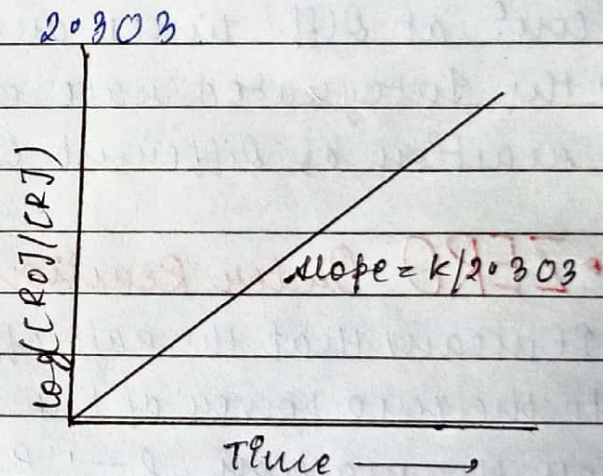 2.303
log([R0]/[R])
slope = k/2.303
Time